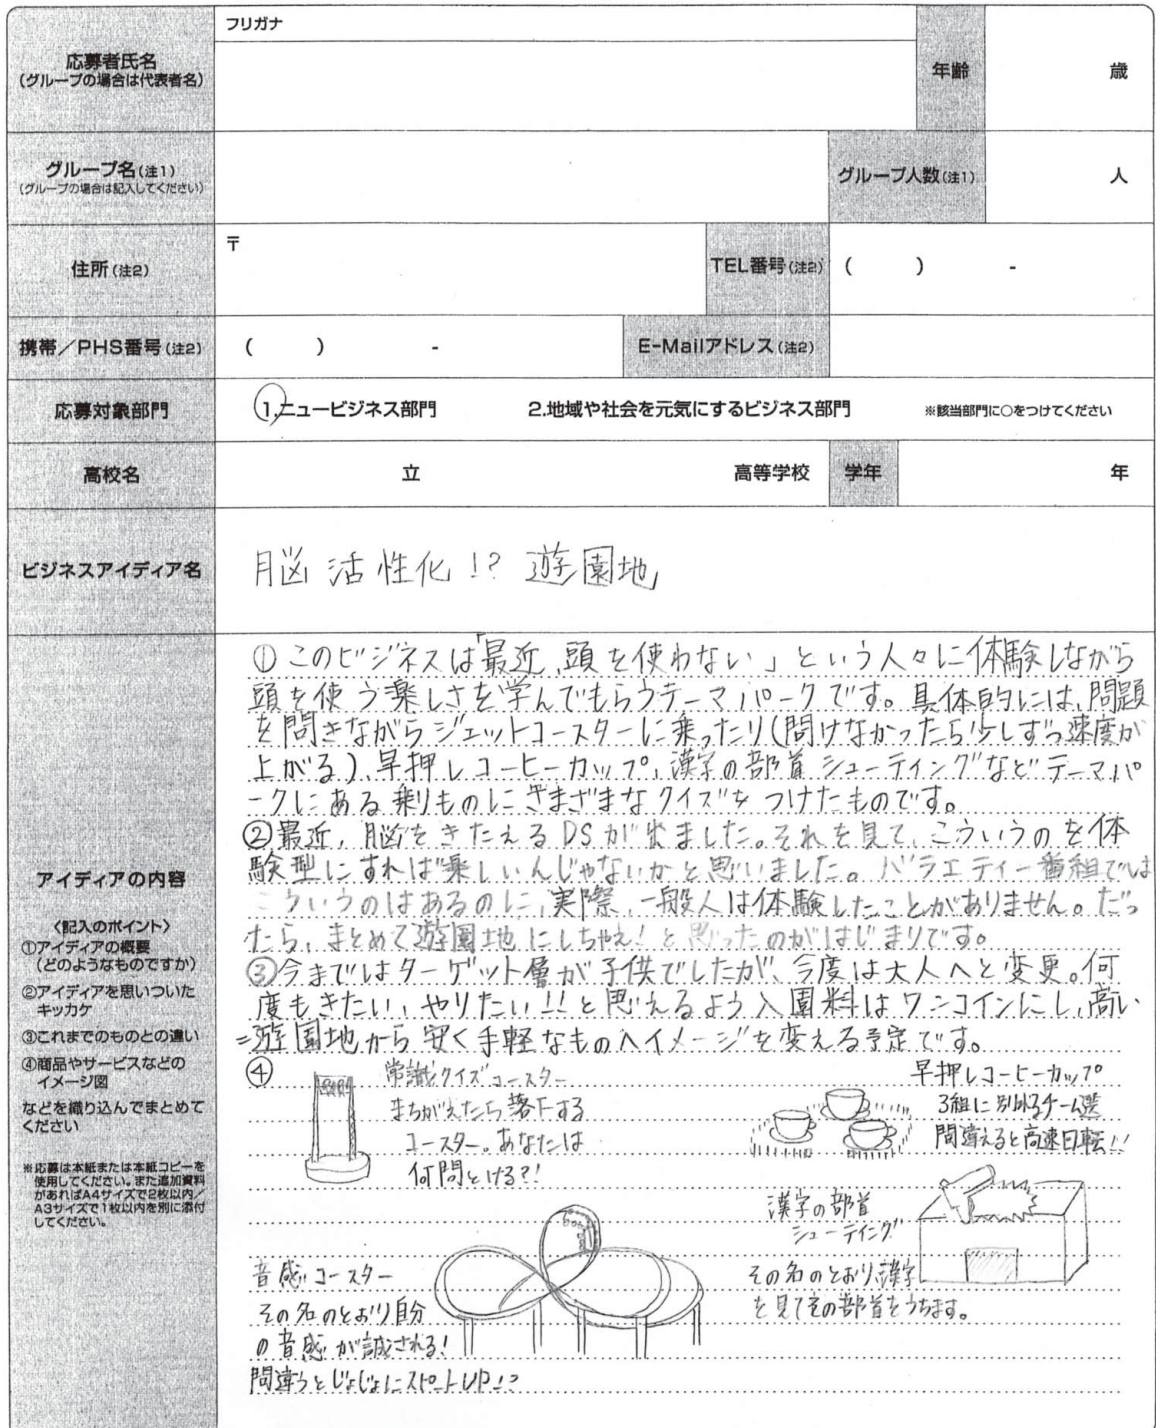 フリガナ
応募者氏名
(グループの場合は代表者名)
年齢
歳
グループ名(注1)
(グループの場合は記入してください)
グループ人数(注1)
人
住所(注2)
〒
TEL番号(注2)
( ) -
携帯/PHS番号(注2)
( ) -
E-Mailアドレス(注2)
応募対象部門
1.ニュービジネス部門
2.地域や社会を元気にするビジネス部門
※該当部門に○をつけてください
高校名
立
高等学校
学年
年
ビジネスアイディア名
脳活性化!?遊園地
アイディアの内容
〈記入のポイント〉
①アイディアの概要
(どのようなものですか)
②アイディアを思いついた
キッカケ
③これまでのものとの違い
④商品やサービスなどの
イメージ図
などを織り込んでまとめて
ください
※応募は本紙または本紙コピーを
使用してください。また追加資料
があればA4サイズで2枚以内/
A3サイズで1枚以内を別に添付
してください。
①このビジネスは「最近、頭を使わない」という人々に体験しながら
頭を使う楽しさを学んでもらうテーマパークです。具体的には、問題
を問きながらジェットコースターに乗ったり(問けなかったら少しずつ速度が
上がる)、早押しコーヒーカップ、漢字の部首シューティングなどテーマパ
ークにある乗りものにさまざまなクイズをつけたものです。
②最近、脳をきたえるDSが出ました。それを見て、こういうのを体
験型にすれば楽しいんじゃないかと思いました。バラエティー番組では
こういうのはあるのに、実際、一般人は体験したことがありません。だっ
たら、まとめて遊園地にしちゃえ!と思ったのがはじまりです。
③今まではターゲット層が子供でしたが、今度は大人へと変更。何
度もきたい、やりたい!!と思えるよう入園料はワンコインにし、高い
=遊園地から安く手軽なものへイメージを変える予定です。
④
常識クイズコースター
まちがえたら落下する
コースター。あなたは
何問とける?!
早押しコーヒーカップ
3組に別れるチーム選
間違えると高速回転!!
漢字の部首
シューティング
その名のとおり漢字
を見てその部首をうちます。
音感コースター
その名のとおり自分
の音感が試される!
間違うとじょじょにスピートUP!?